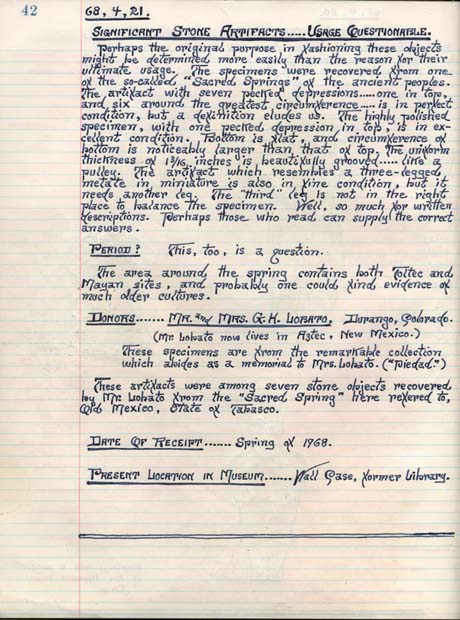 42
68, 4, 21.
Significant Stone Artifacts..... Usage Questionable.
Perhaps the original purpose in fashioning these objects
might be determined more easily than the reason for their
ultimate usage. The specimens were recovered from one
of the so-called, "Sacred Springs" of the ancient peoples.
The artifact with seven pecked depressions.... one in top,
and six around the greatest circumference.... is in perfect
condition, but a definition eludes us. The highly polished
specimen, with one pecked depression in top, is in ex-
cellent condition. Bottom is flat, and circumference of
bottom is noticeably larger than that of top. The uniform
thickness of 1 3/16 inches is beautifully grooved..... like a
pulley. The artifact which resembles a three-legged,
metate in miniature is also in fine condition, but it
needs another leg. The "third" leg is not in the right
place to balance the specimen. Well, so much for written
descriptions. Perhaps those who read can supply the correct
answers.
Period? This, too, is a question.
The area around the spring contains both Toltec and
Mayan sites, and probably one could find evidence of
much older cultures.
Donors....... Mr. and Mrs. G. H. Lobato. Durango, Colorado.
(Mr. Lobato now lives in Aztec, New Mexico.)
These specimens are from the remarkable collection
which abides as a memorial to Mrs. Lobato. ("Piedad.")
These artifacts were among seven stone objects recovered
by Mr. Lobato from the "Sacred Spring" here refered to,
Old Mexico, State of Tabasco.
Date Of Receipt....... Spring of 1968.
Present Location in Museum....... Wall Case, former Library.